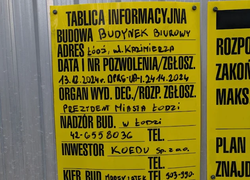 TABLICA INFORMACYJNA
BUDOWA BUDYNEK BIUROWY
ADRES ŁÓDŹ, ul. KAZIMIERZA
DATA I NR POZWOLENIA/ZGŁOSZ.
13.12.2024r. DPRG-UA-I.24.14.2024
ORGAN WYD. DEC./ROZP. ZGŁOSZ.
PREZYDENT MIASTA ŁODZI
NADZÓR BUD. W ŁODZI
42-6558036 TEL.
INWESTOR KOEDU Sp. z o.o.
TEL.
KIER. BUD. TEL. 503-990-
ROZPO
ZAKOŃ
MAKS
PLAN
ZNAJD